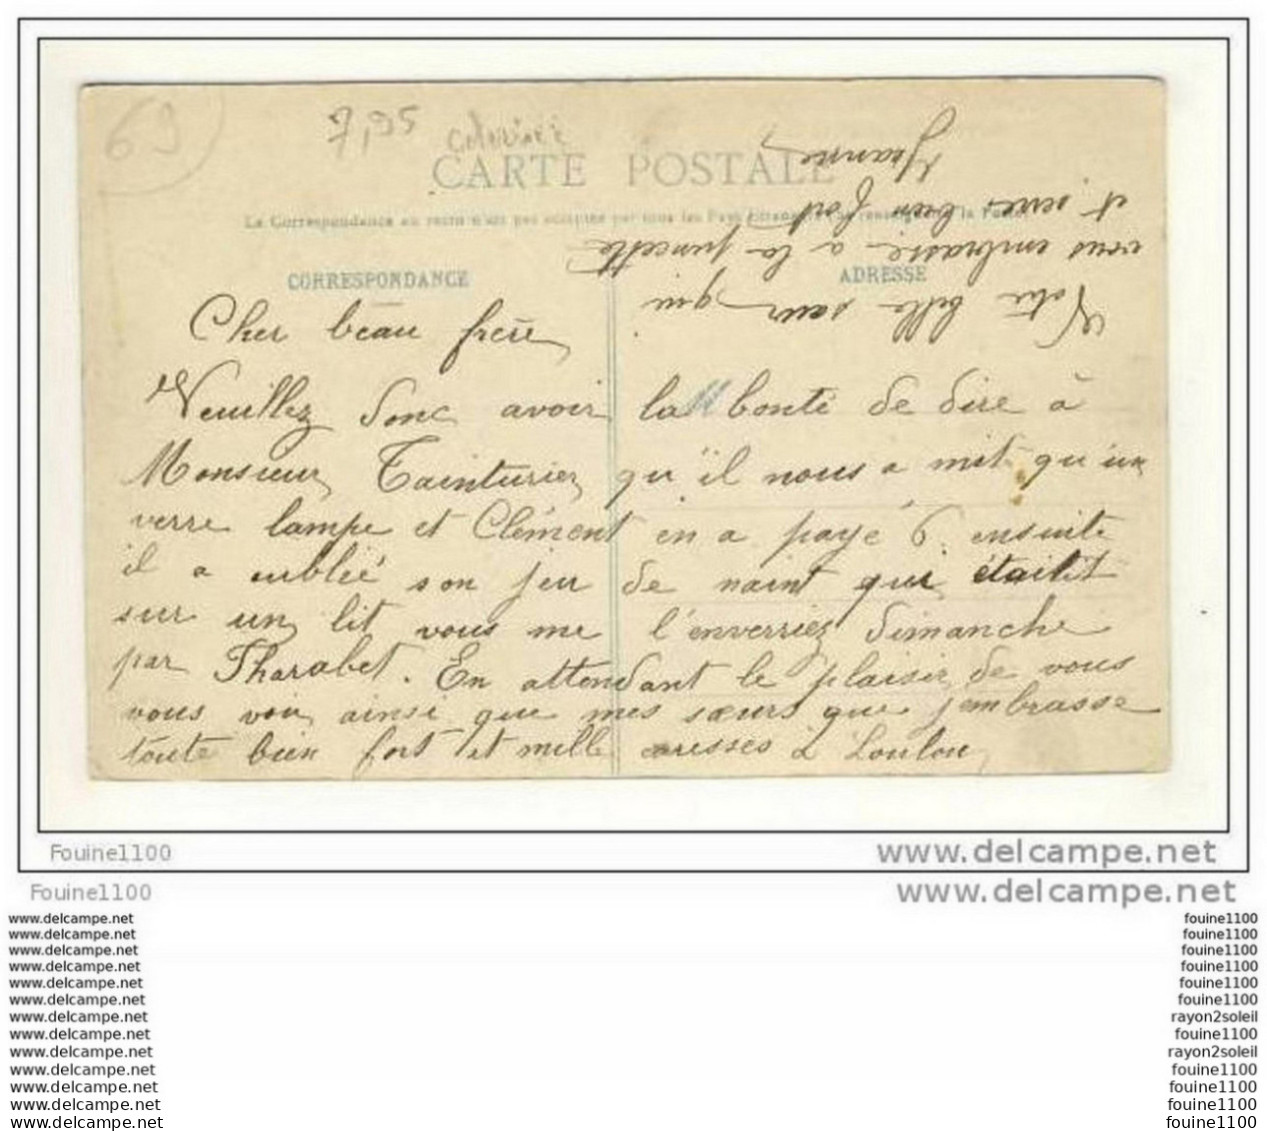 69
7,95
CARTE POSTALE
La Correspondance au recto n'est pas acceptée par tous les Pays Etrangers
CORRESPONDANCE
ADRESSE
Cher beau frère
Veuillez donc avoir la bonté de dire à
Monsieur Tainturier qu'il nous a mit qu'un
verre lampe et Clément en a payé 6. ensuite
il a oublié son jeu de naint qui était
sur un lit vous me l'enverriez dimanche
par Tharabet. En attendant le plaisir de vous
vous voir ainsi que mes sœurs que j'embrasse
toute bien fort et mille caresses à Loulou
Votre belle sœur qui
vous embrasse à la pincette
et serre bien fort
Jeanne
Fouine1100
www.delcampe.net
Fouine1100
www.delcampe.net
www.delcampe.net
fouine1100
www.delcampe.net
fouine1100
www.delcampe.net
fouine1100
www.delcampe.net
fouine1100
www.delcampe.net
fouine1100
www.delcampe.net
fouine1100
www.delcampe.net
rayon2soleil
www.delcampe.net
fouine1100
www.delcampe.net
rayon2soleil
www.delcampe.net
fouine1100
www.delcampe.net
fouine1100
www.delcampe.net
fouine1100
www.delcampe.net
fouine1100